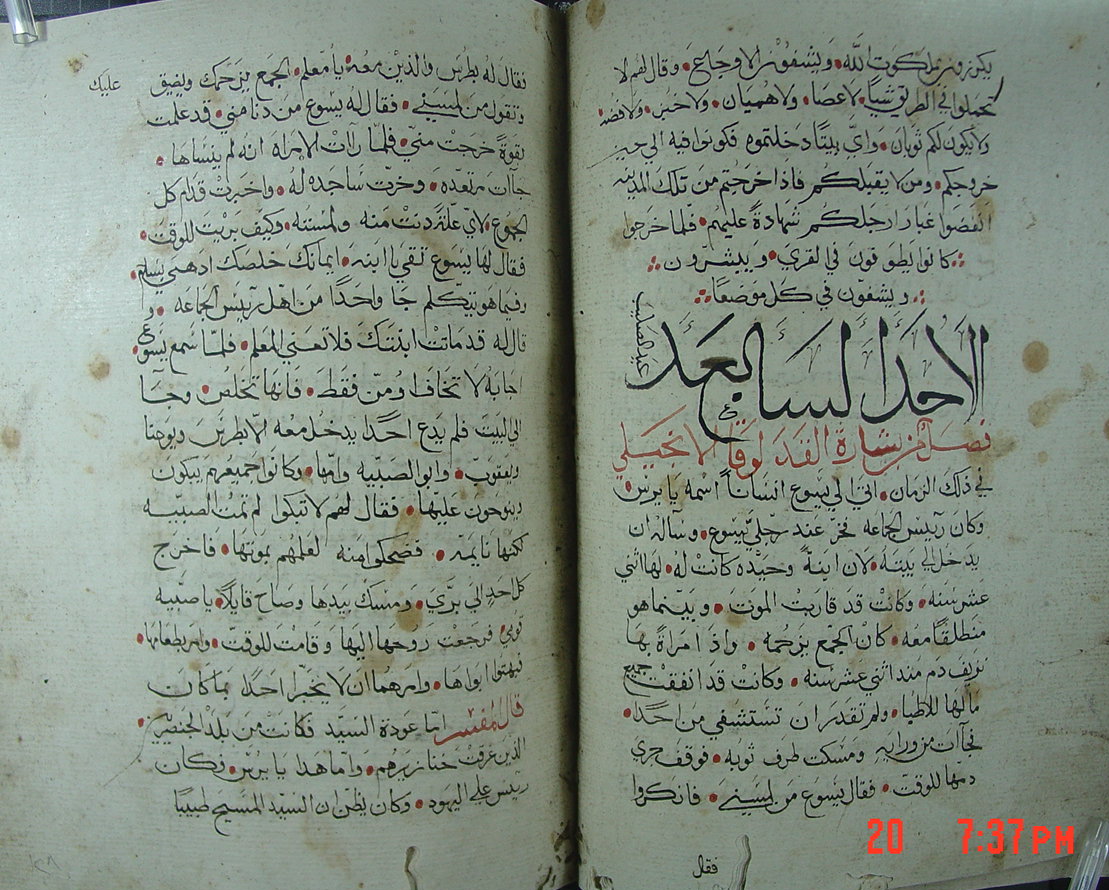 يكرزون بملكوت الله ويشفون الاوجاع وقال لهم لا
تحملوا في الطريق شياً لا عصا ولا هميان ولا خبز ولا فضه
ولا يكون لكم ثوبان واي بيتاً دخلتموه فكونوا فيه الي حين
خروجكم ومن لا يقبلكم فاذا خرجتم من تلك المدينه
انفضوا غبار ارجلكم شهادة عليهم فلما خرجوا
كانوا يطوفون في القري ويبشرون
ويشفون في كل موضعاً
الاحد السابع بعد
عيد الصليب
فصل من بشارة القديس لوقا الانجيلي
في ذلك الزمان اتي الي يسوع انساناً اسمه يايرس
وكان رييس الجماعه فخر عند رجلي يسوع وساله ان
يدخل الي بيته لان ابنة وحيده كانت له لها اثني
عشر سنه وكانت قد قاربت الموت وبينما هو
منطلقاً معه كان الجمع يزحمه واذا مراة بها
نزيف دم منذ اثني عشر سنه وكانت قد انفقت جميع
مالها للاطبا ولم تقدر ان تستشفي من احد
فجاات من ورايه ومسكت طرف ثوبه فوقف جري
دمها للوقت فقال يسوع من لمسني فانكروا
فقال
فقال له بطرس والذين معه يا معلم الجمع يزحمك ويضيق
عليك
وتقول من لمسني فقال له يسوع من دنا مني قد علمت
بقوة خرجت مني فلما رات الامراه انه لم ينساها
جاات مرتعده وخرت ساجده له واخبرت قدام كل
الجموع لاي علة دنت منه ولمسته وكيف بريت للوقت
فقال لها يسوع ثقي يا ابنه ايمانك خلصك اذهبي بسلم
وفيما هو يتكلم جا واحداً من اهل رييس الجماعه و
قال له قد ماتت ابنتك فلا تعني المعلم فلما سمع يسوع
اجابه لا تخاف اومن فقط فانها تخلص وجا
الي البيت فلم يدع احداً يدخل معه الا بطرس ويوحنا
ويعقوب وابو الصبيه وامها وكانوا جميعهم يبكون
وينوحون عليها فقال لهم لا تبكوا لم تمت الصبيه
لكنها نايمه فضحكوا منه لعلمهم بموتها فاخرج
كل احد الي بري ومسك بيدها وصاح قايلاً يا صبيه
قومي فرجعت روحها اليها وقامت للوقت وامر بطعامها
فبهتوا ابواها وامرهما ان لا يخبرا احداً بما كان
قال المفسر اما عودة السيد فكانت من بلد
الذين غرقت خنازيرهم واما هذا يايرس فكان
رييس علي اليهود وكان يظن ان السيد المسيح طبيبا
20 7:37 PM